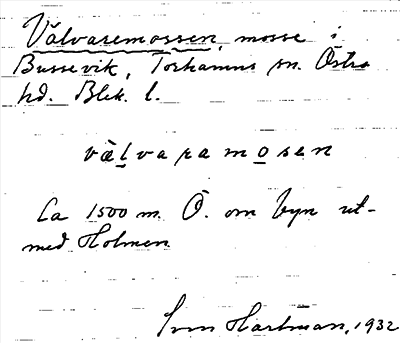 Välvaremossen, mosse i
Bussevik, Torhamns sn. Östra
hd. Blek. l.
vœlvaramosen
Ca 1500 m. Ö. om byn ut-
med Holmen
Sven Hartman, 1932